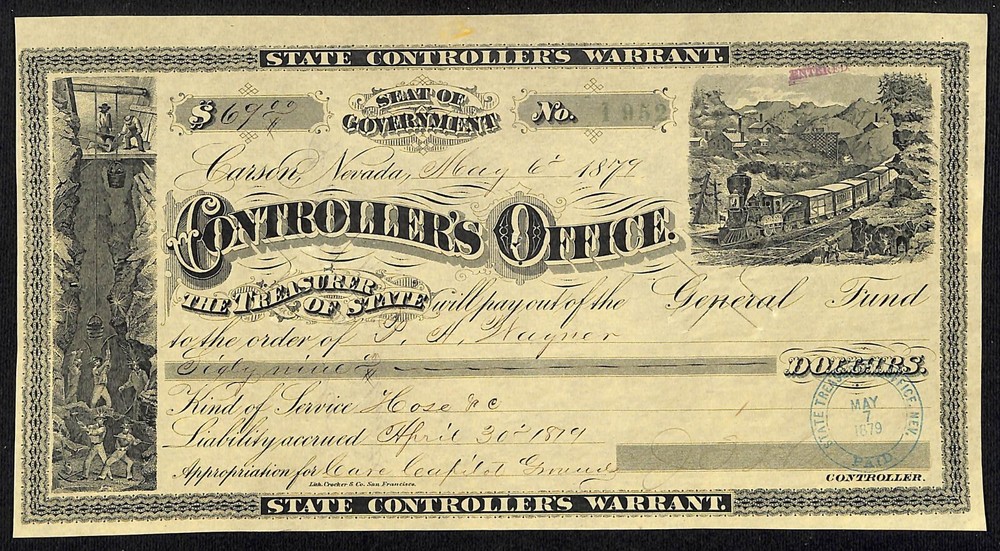 STATE CONTROLLER'S WARRANT.
ENTERED
$69.00 SEAT OF GOVERNMENT No. 1952
Carson, Nevada, May 6th 1879
CONTROLLER'S OFFICE.
THE TREASURER OF STATE will pay out of the General Fund
to the order of P. H. Wagner
Sixty nine DOLLARS.
Kind of Service Hose &c
Liability accrued April 30th 1879
Appropriation for Care Capitol Grounds
STATE TREASURER'S OFFICE NEV.
MAY
7
1879
PAID
CONTROLLER.
Lith. Crocker & Co. San Francisco.
STATE CONTROLLER'S WARRANT.